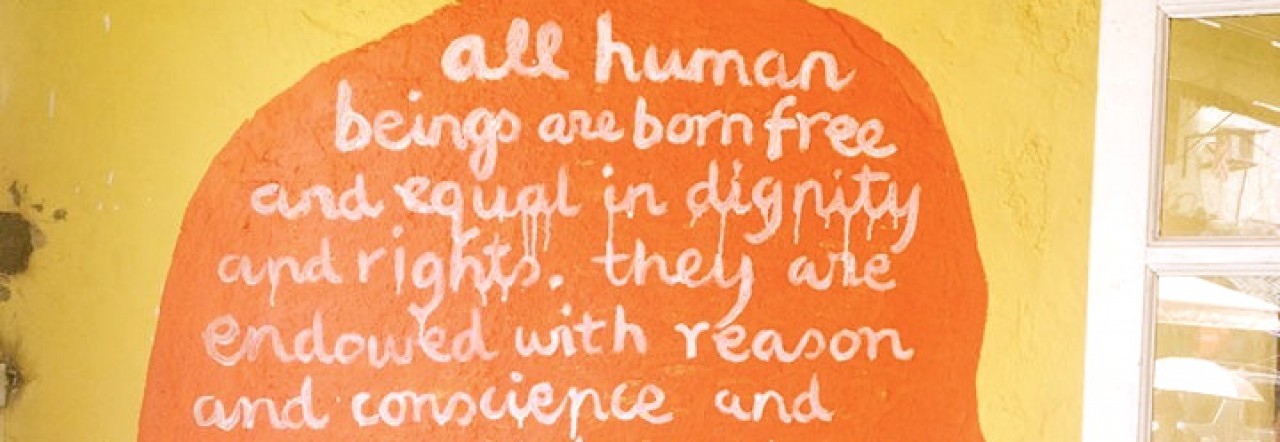 all human
beings are born free
and equal in dignity
and rights. they are
endowed with reason
and conscience and